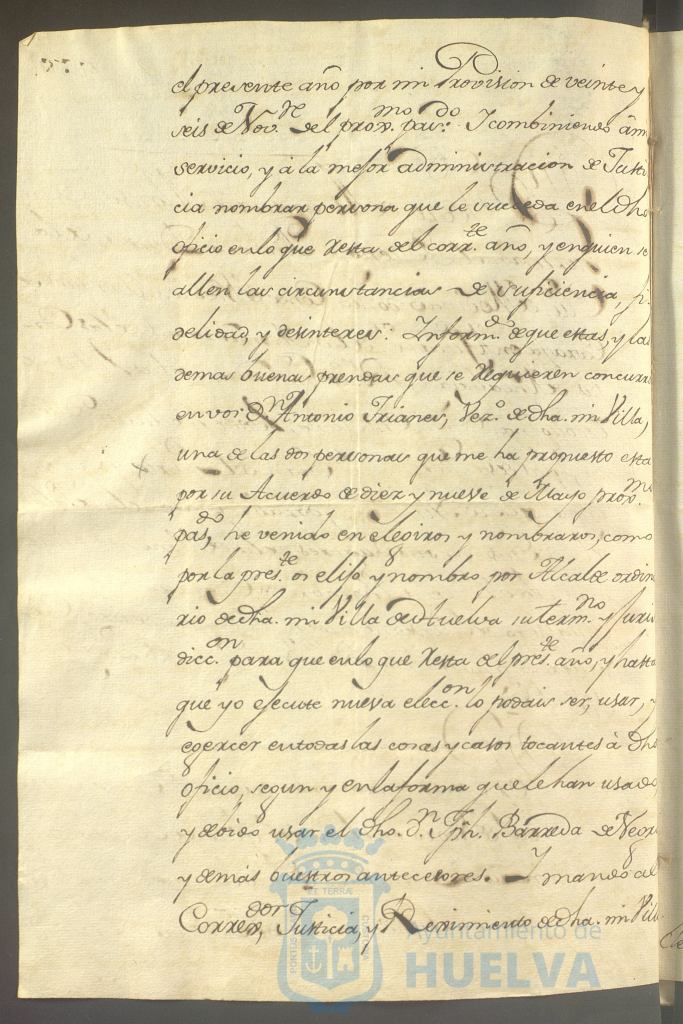 el presente año por mi Provision de veinte y
seis de Nov.re del prox.mo pas.do Y combiniendo âm
servicio, y á la mejor administracion de Justi
cia nombrar persona que le suceda en el dho
oficio en lo que Resta del corr.te año, y en quien se
allen las circunstancias de suficiencia, fi
delidad, y desinteres: Inform.do de que estas, y las
demas buenas prendas que se Requieren concurr
en vos D.n Antonio Trianes, Vez.o de dha. mi Villa,
una de las dos personas que me ha propuesto esta
por su Acuerdo de diez y nueve de Mayo prox.mo
pas.do, he venido en elegiros y nombraros, como
por la pres.te os elijo y nombro por Alcalde ordin
rio de dha. mi Villa de Huelva su term.no y juris
dicc.on para que en lo que Resta del pres.te año, y hasta
que yo ejecute nueva elecc.on lo podais ser, usar, y
egercer en todas las cosas y casos tocantes â dho
oficio, segun y en la forma que le han usado
y debido usar el dho. D.n Jph. Barreda de
y demás buestros antecesores. Y mando al
Correx.dor, Justicia, y Reximiento de dha. mi Vill
ET TERRÆ
PORTUS
CUSTODIA
Ayuntamiento de
HUELVA